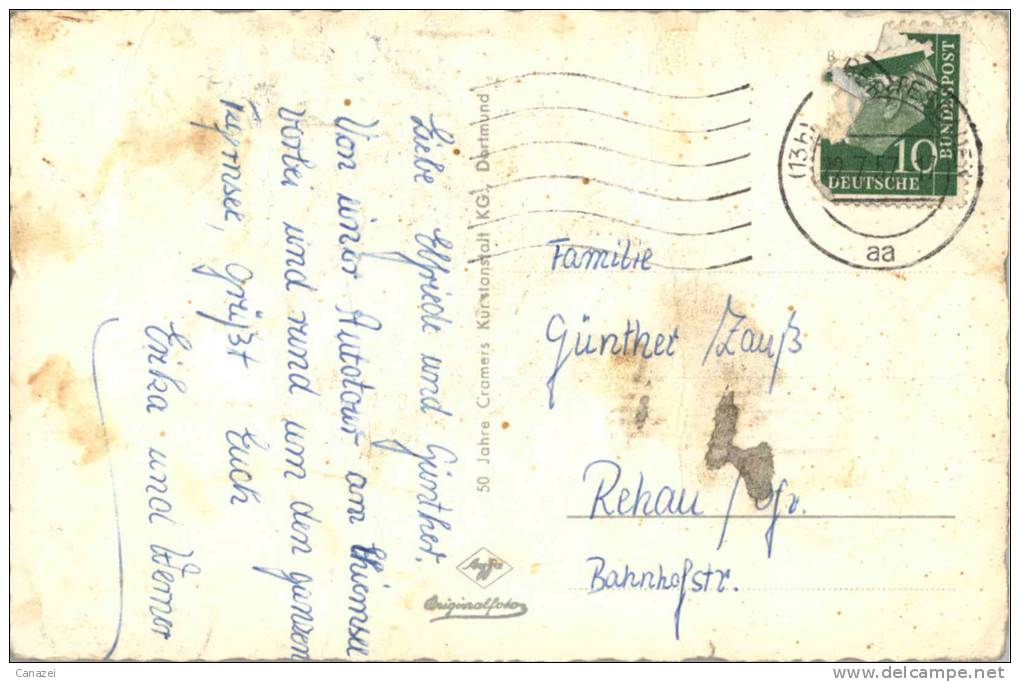 Liebe Elfriede und Günther.
Von unsrer Autotour am Chiemsee
vorbei und rund um den ganzen
grüßt Euch
Erika und Werner
50 Jahre Cramers Kunstanstalt KG., Dortmund
Agfa
Originalfoto
10
DEUTSCHE
BUNDESPOST
(13b)
7.57
aa
Familie
Günther Zauß
Rehau / Ofr.
Bahnhofstr.
Canazei
www.delcampe.net